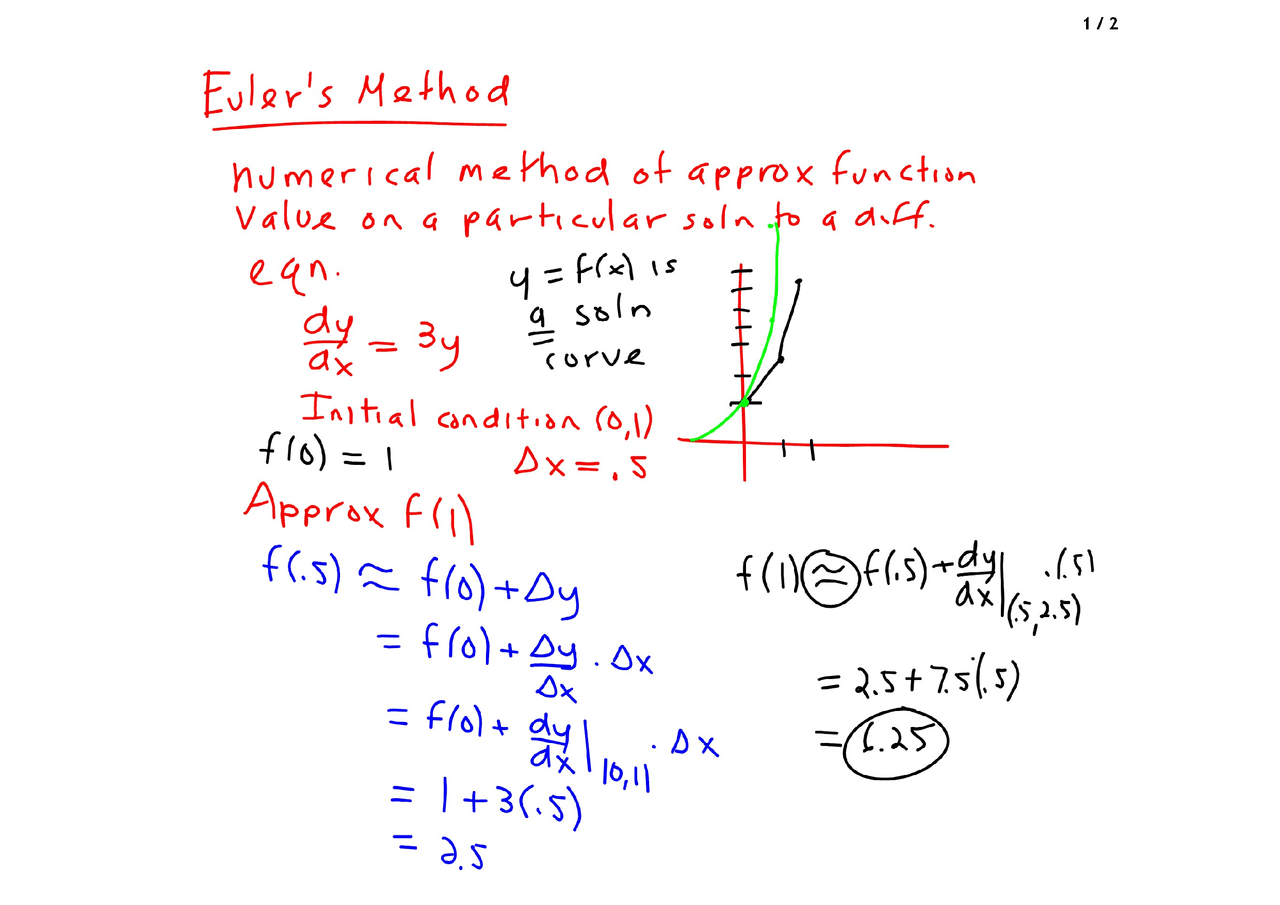 1 / 2
Euler's Method
numerical method of approx function
value on a particular soln to a diff.
eqn.
y = f(x) is
a soln
curve
dy/dx = 3y
Initial condition (0,1)
f(0) = 1
Δx = .5
Approx f(1)
f(.5) ≈ f(0) + Δy
= f(0) + Δy/Δx · Δx
= f(0) + dy/dx |(0,1) · Δx
= 1 + 3(.5)
= 2.5
f(1) ≈ f(.5) + dy/dx |(.5, 2.5) · (.5)
= 2.5 + 7.5(.5)
= 6.25